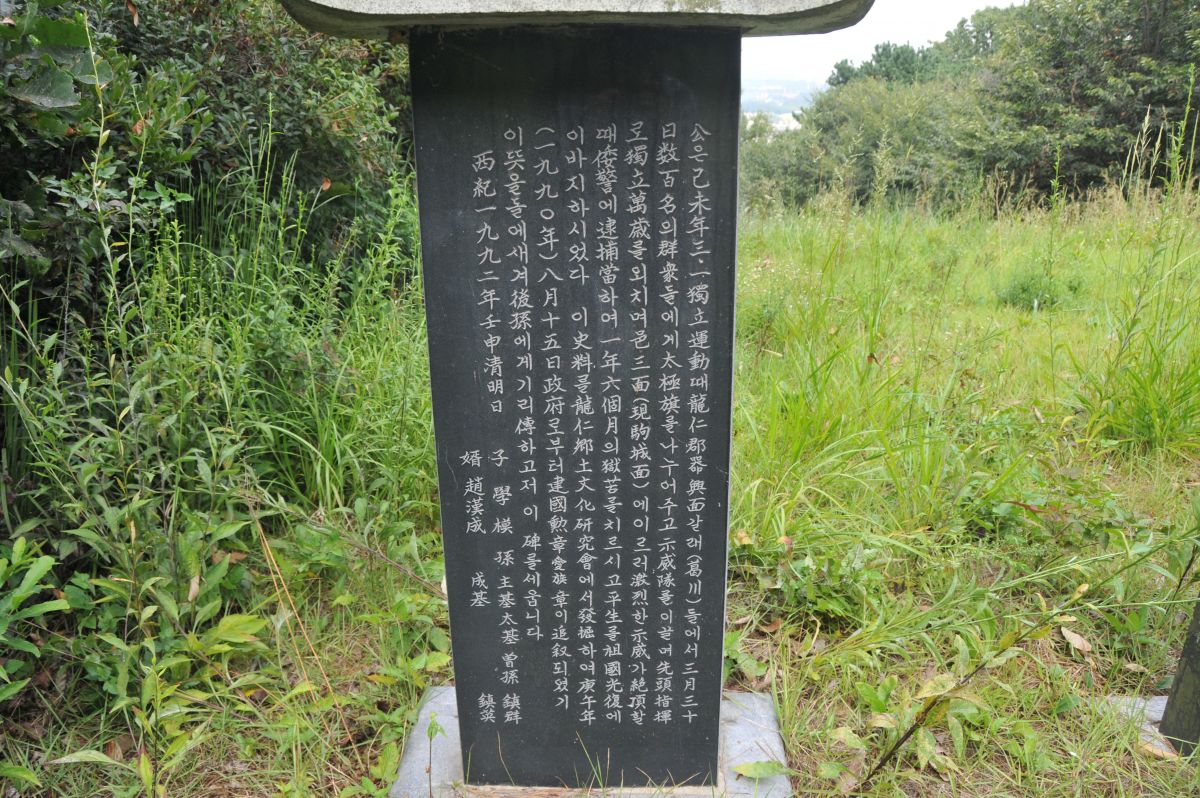 公은己未年三·一獨立運動때龍仁郡器興面갈래(葛川)들에서三月三十
日数百名의群衆들에게太極旗를나누어주고示威隊를이끌며先頭指揮
로獨立萬歲를외치며邑三面(現駒城面)에이르러激烈한示威가絶頂할
때倭警에逮捕當하여一年六個月의獄苦를치르시고平生를祖國光復에
이바지하시었다 이史料를龍仁鄕土文化硏究會에서發掘하여庚午年
(一九九〇年)八月十五日政府로부터建國勲章愛族章이追叙되였기
이뜻을돌에새겨後孫에게기리傳하고저 이碑를세움니다
西紀一九九二年壬申清明日 子學模 孫主基太基曾孫鎮
婿趙漢成 成基 鎮英